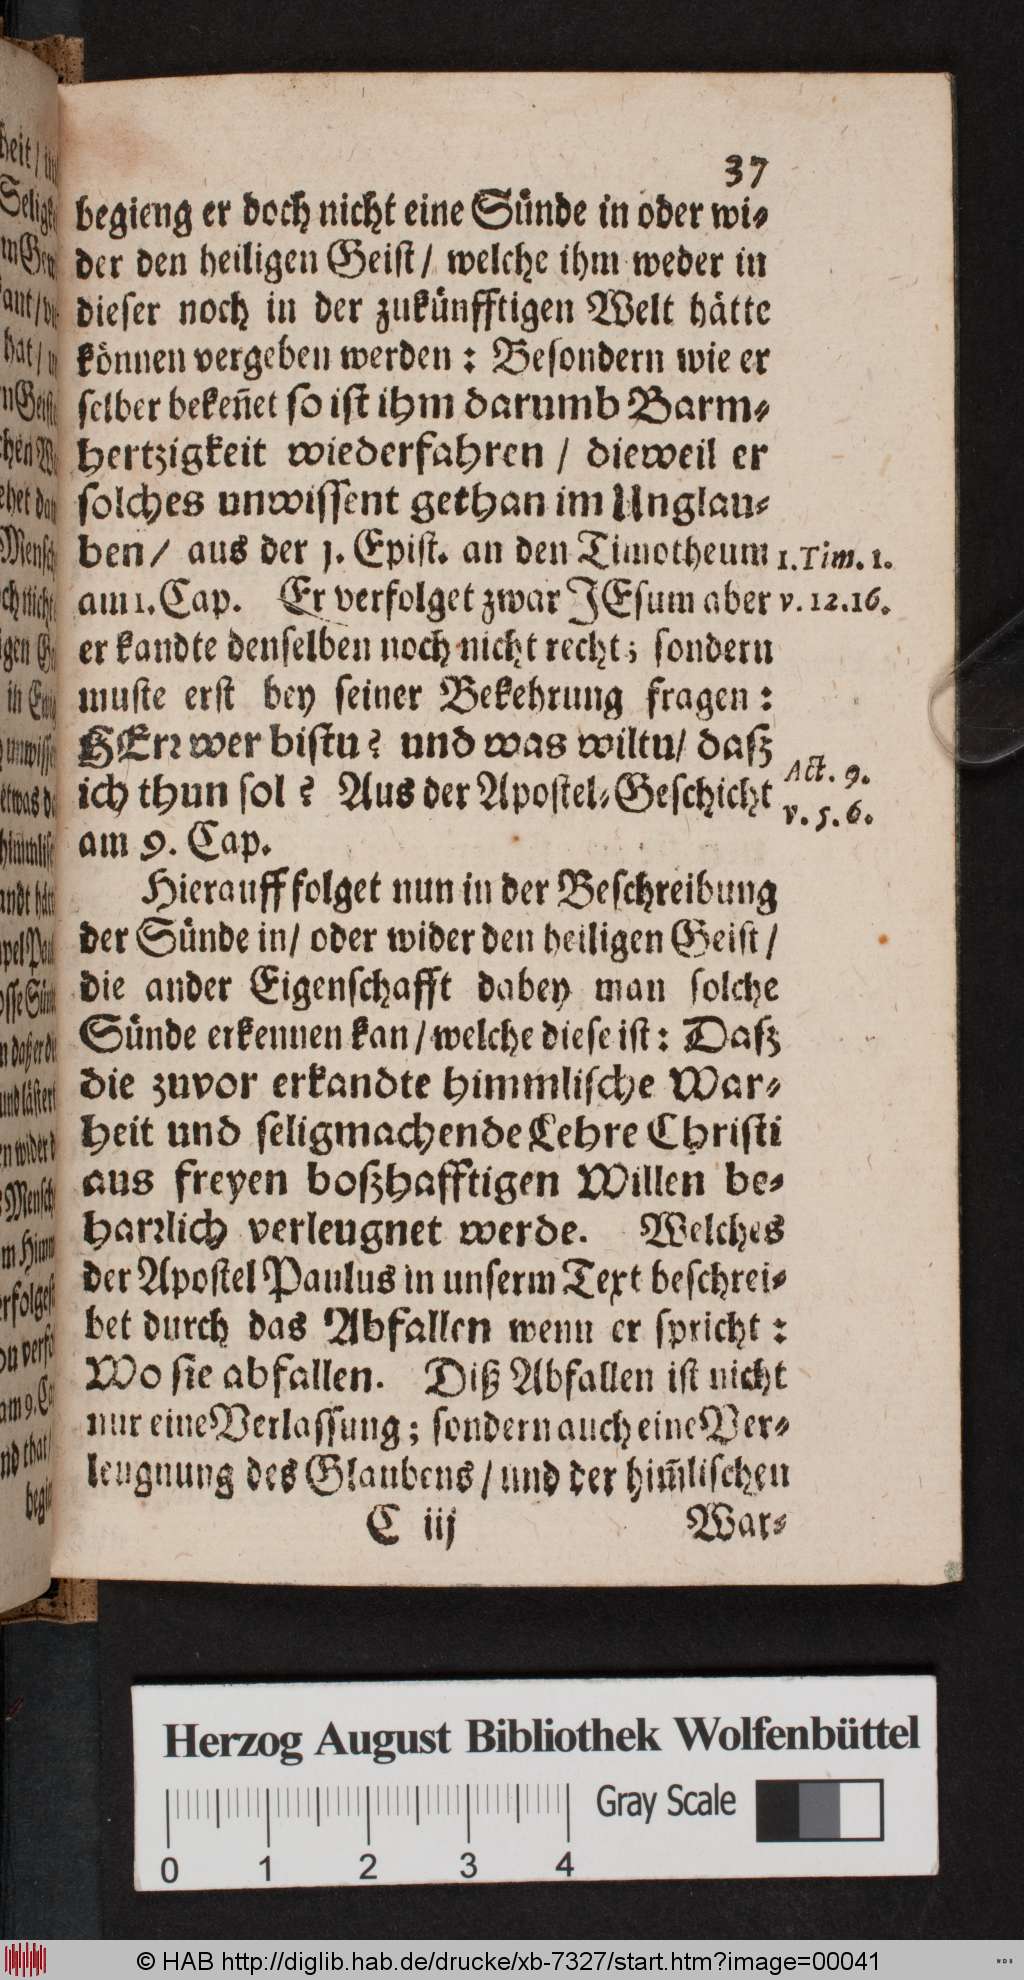 37
begieng er doch nicht eine Sünde in oder wi-
der den heiligen Geist/ welche ihm weder in
dieser noch in der zukünfftigen Welt hätte
können vergeben werden: Besondern wie er
selber bekeñet so ist ihm darumb Barm-
hertzigkeit wiederfahren / dieweil er
solches unwissent gethan im Unglau-
ben/ aus der j. Epist. an den Timotheum
1. Tim. 1.
am 1. Cap. Er verfolget zwar JEsum aber
v. 12. 16.
er kandte denselben noch nicht recht; sondern
muste erst bey seiner Bekehrung fragen:
HErr wer bistu? und was wiltu/ daß
ich thun sol? Aus der Apostel-Geschicht
Act. 9.
v. 5. 6.
am 9. Cap.
Hierauff folget nun in der Beschreibung
der Sünde in/ oder wider den heiligen Geist/
die ander Eigenschafft dabey man solche
Sünde erkennen kan/ welche diese ist: Daß
die zuvor erkandte himmlische War-
heit und seligmachende Lehre Christi
aus freyen boßhafftigen Willen be-
harrlich verleugnet werde. Welches
der Apostel Paulus in unserm Text beschrei-
bet durch das Abfallen wenn er spricht:
Wo sie abfallen. Diß Abfallen ist nicht
nur eine Verlassung; sondern auch eine Ver-
leugnung des Glaubens/ und der him̃lischen
C iij War-
Herzog August Bibliothek Wolfenbüttel
Gray Scale
0 1 2 3 4
© HAB http://diglib.hab.de/drucke/xb-7327/start.htm?image=00041